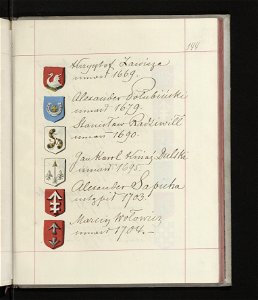 144
Krzysztof Zawisza
umarł 1669.
Alexander Połubiński
umarł 1679.
Stanisław Radziwiłł
umarł 1690.
Jan Karol Kniaź Dolski
umarł 1695.
Alexander Sapieha
ustąpił 1703.
Marcin Wołowicz
umarł 1704.—